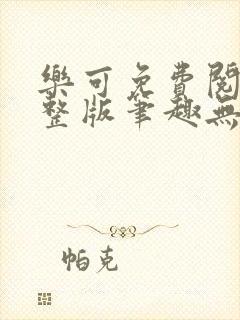 樂可免費閱
整版筆趣無
帕克